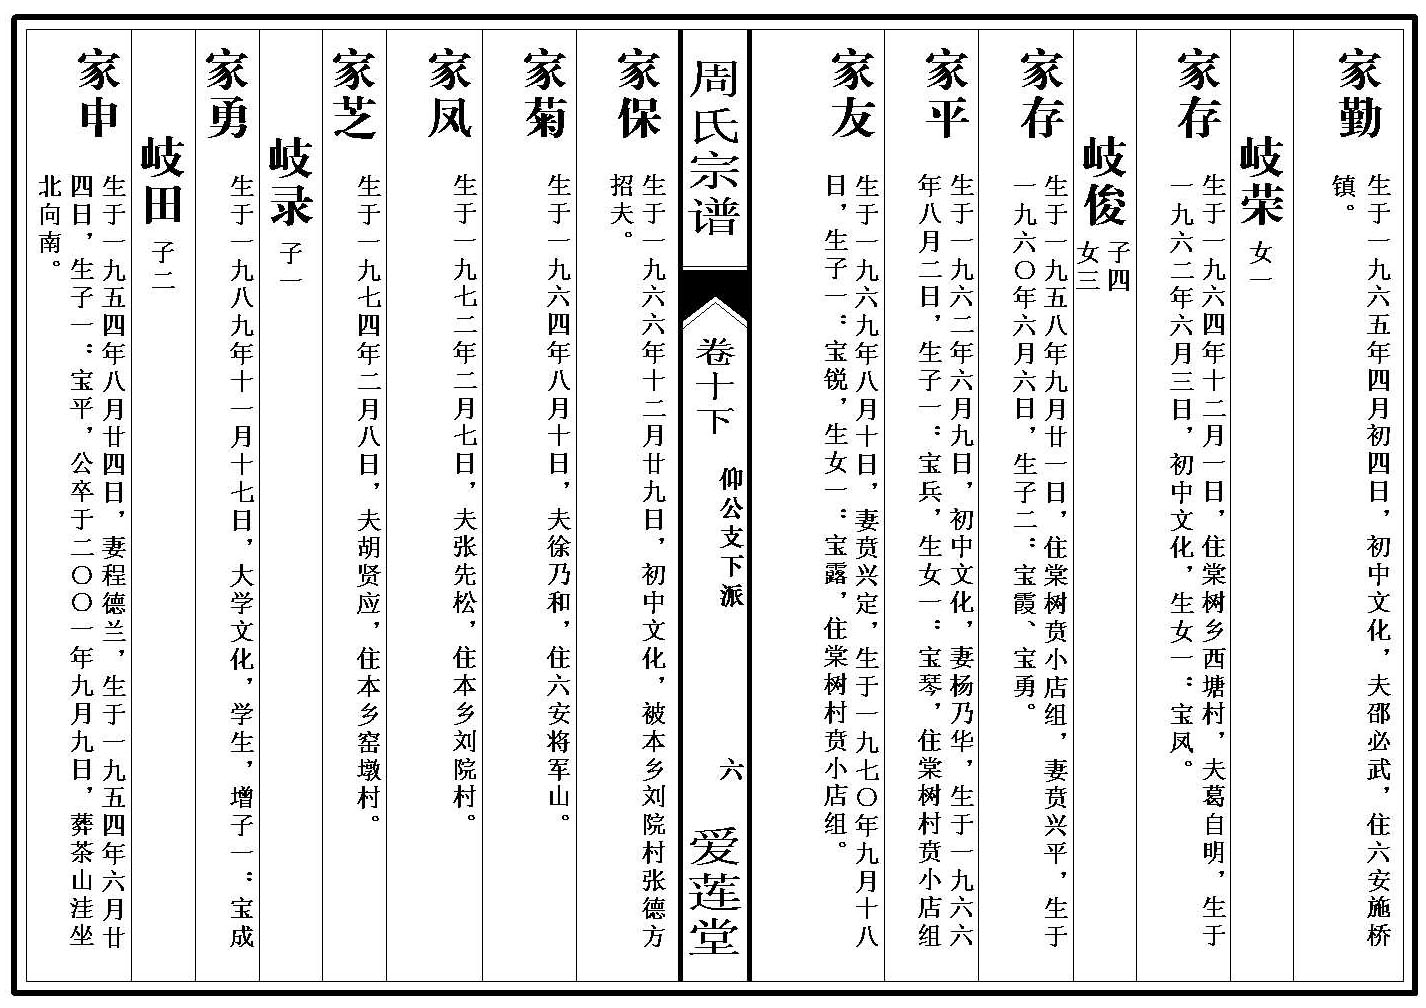 家勤
生于一九六五年四月初四日，初中文化，夫邵必武，住六安施桥
镇。
岐荣
女一
家存
生于一九六四年十二月一日，住棠树乡西塘村，夫葛自明，生于
一九六二年六月三日，初中文化，生女一：宝凤。
岐俊
子四
女三
家存
生于一九五八年九月廿一日，住棠树贲小店组，妻贲兴平，生于
一九六〇年六月六日，生子二：宝霞、宝勇。
家平
生于一九六二年六月九日，初中文化，妻杨乃华，生于一九六六
年八月二日，生子一：宝兵，生女一：宝琴，住棠树村贲小店组
家友
生于一九六九年八月十日，妻贲兴定，生于一九七〇年九月十八
日，生子一：宝锐，生女一：宝露，住棠树村贲小店组。
周氏宗谱
卷十下
仰公支下派
六
爱莲堂
家保
生于一九六六年十二月廿九日，初中文化，被本乡刘院村张德方
招夫。
家菊
生于一九六四年八月十日，夫徐乃和，住六安将军山。
家凤
生于一九七二年二月七日，夫张先松，住本乡刘院村。
家芝
生于一九七四年二月八日，夫胡贤应，住本乡窑墩村。
岐录
子一
家勇
生于一九八九年十一月十七日，大学文化，学生，增子一：宝成
岐田
子二
家申
生于一九五四年八月廿四日，妻程德兰，生于一九五四年六月廿
四日，生子一：宝平，公卒于二〇〇一年九月九日，葬茶山洼坐
北向南。